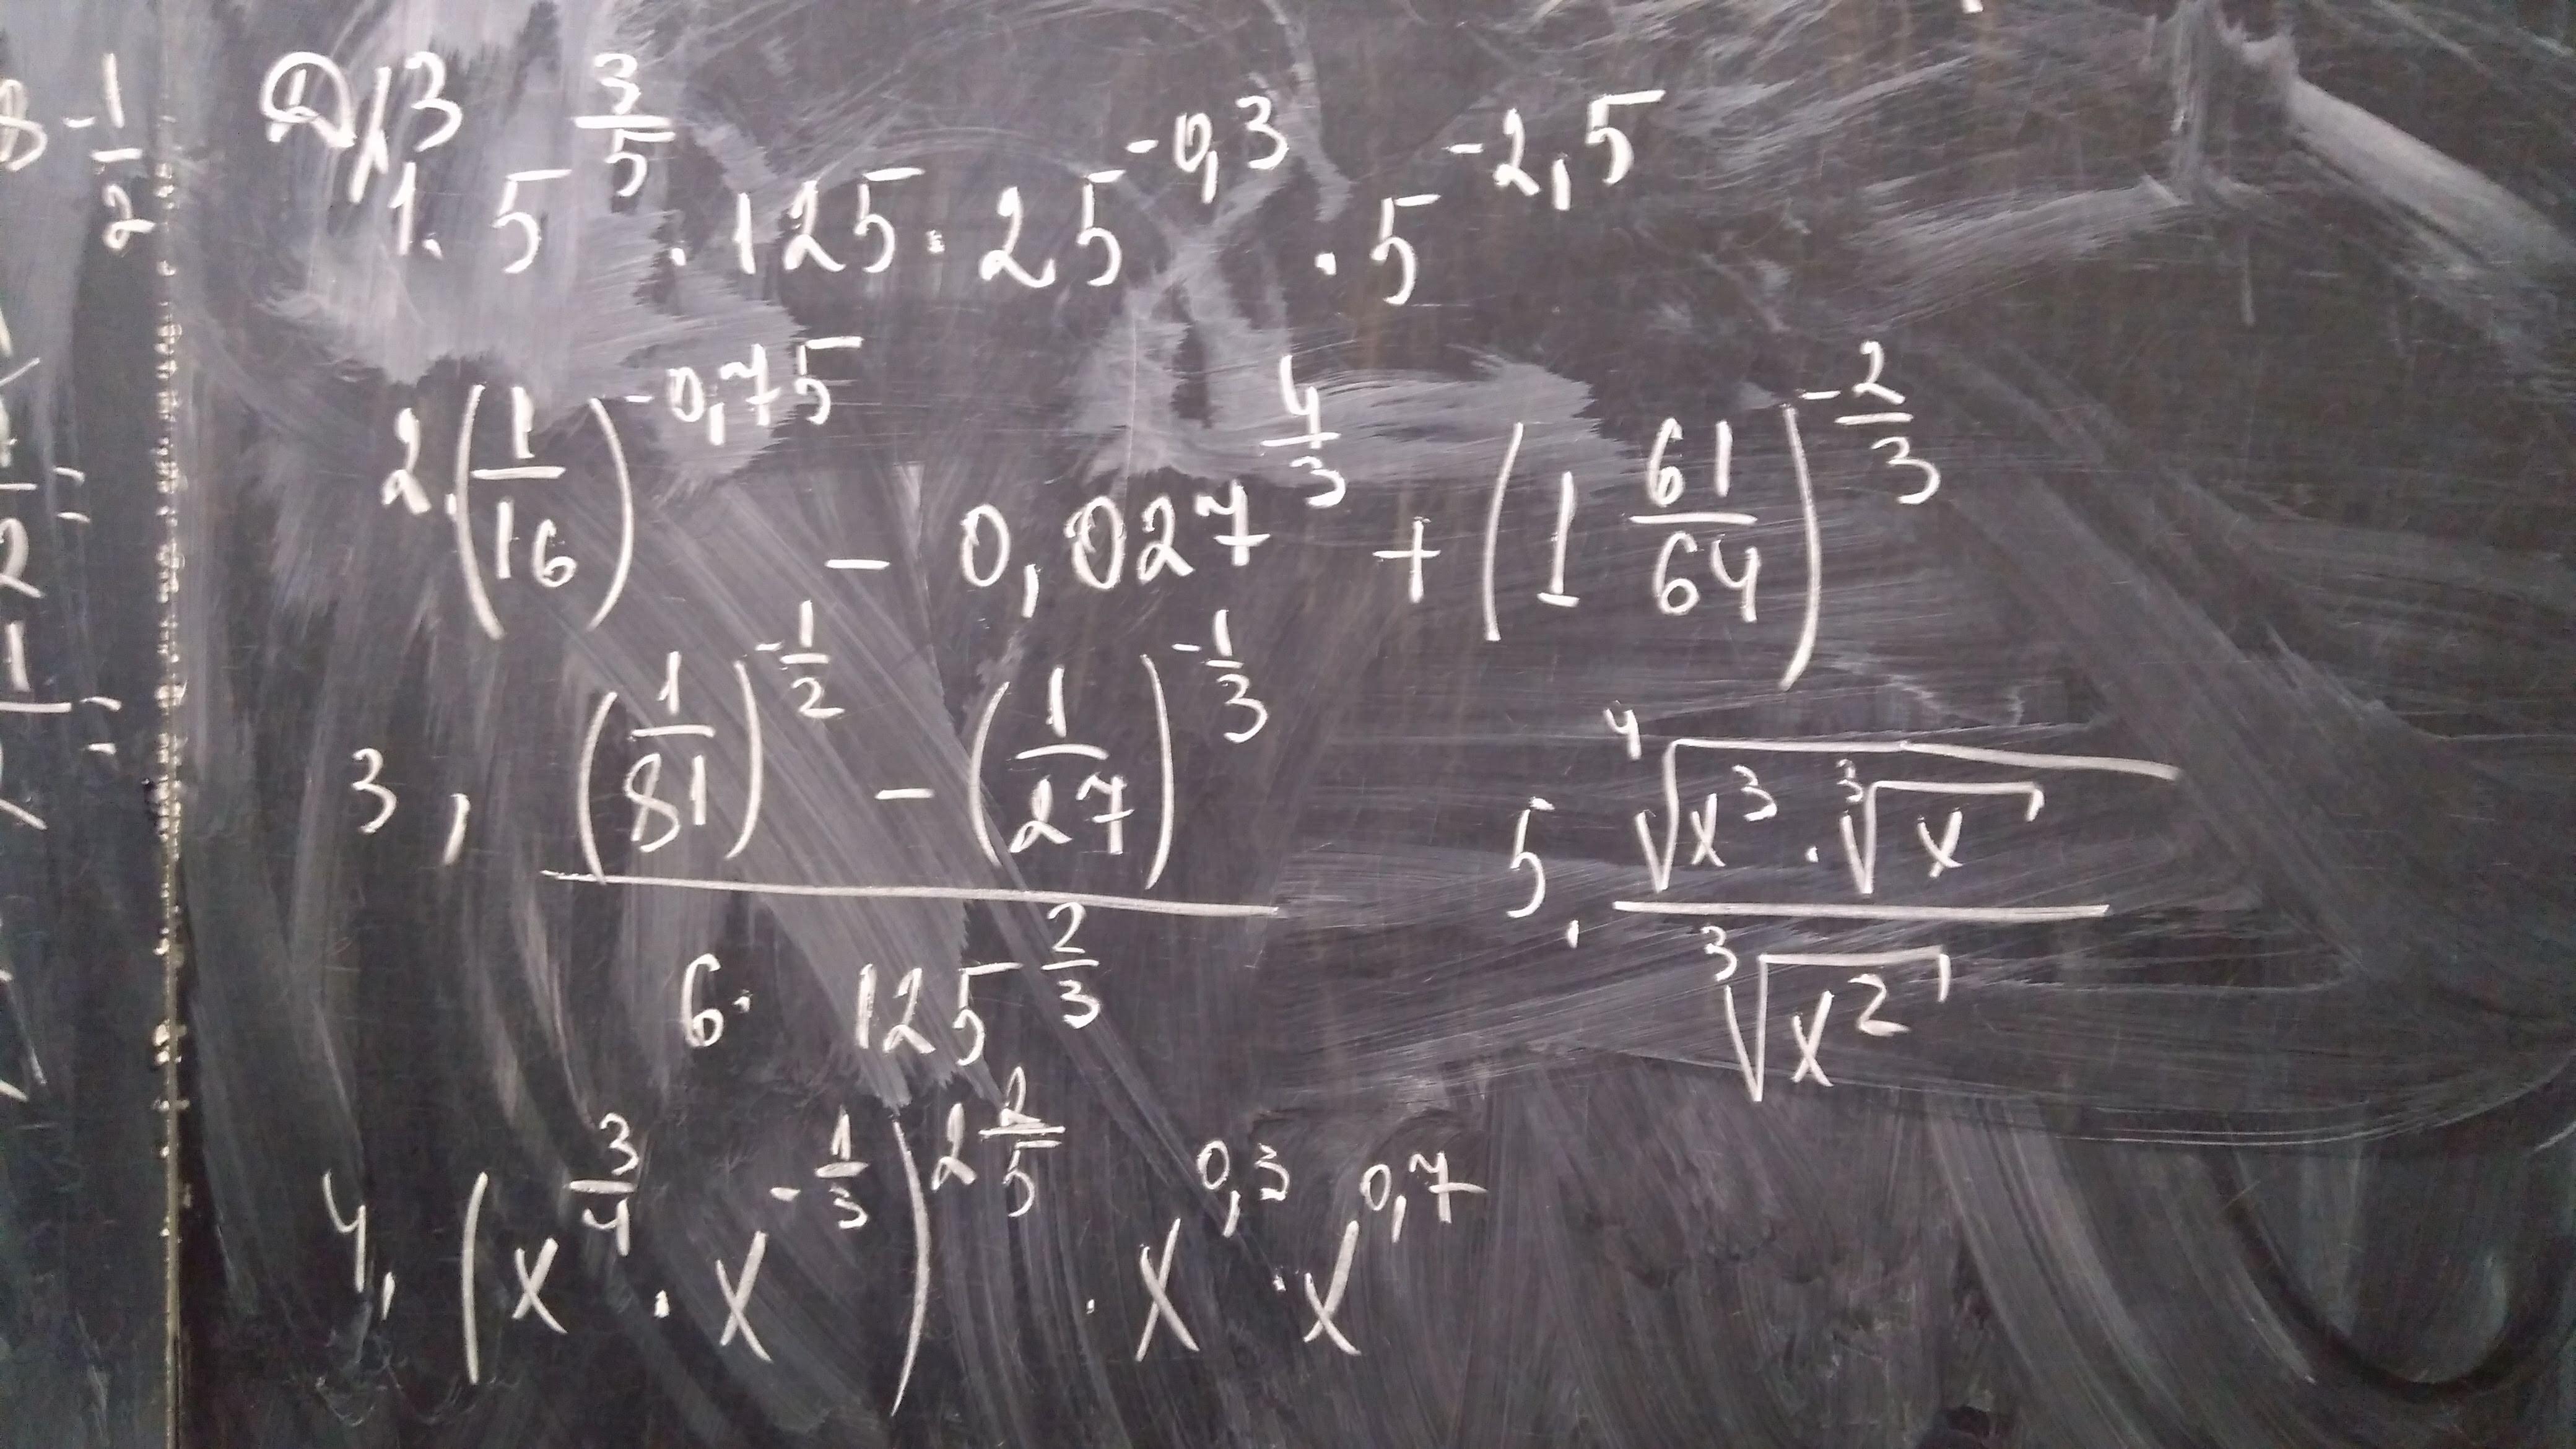 8^{-\frac{1}{2}}
Д/З
1. 5^{\frac{3}{5}} · 125 · 25^{-0,3} · 5^{-2,5}
2. \left(\frac{1}{16}\right)^{-0,75} - 0,027^{\frac{4}{3}} + \left(1\frac{61}{64}\right)^{-\frac{2}{3}}
3, \frac{\left(\frac{1}{81}\right)^{-\frac{1}{2}} - \left(\frac{1}{27}\right)^{-\frac{1}{3}}}{6 · 125^{\frac{2}{3}}}
4, \left(x^{\frac{3}{4}} · x^{-\frac{1}{3}}\right)^{2\frac{2}{5}} · x^{0,3} · x^{0,7}
5. \frac{\sqrt[4]{x^3 · \sqrt[3]{x}}}{\sqrt[3]{x^2}}